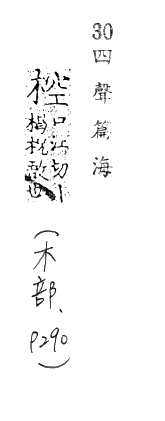 30四聲篇海
椌口江切丨楬柷敔也（木部、P290）